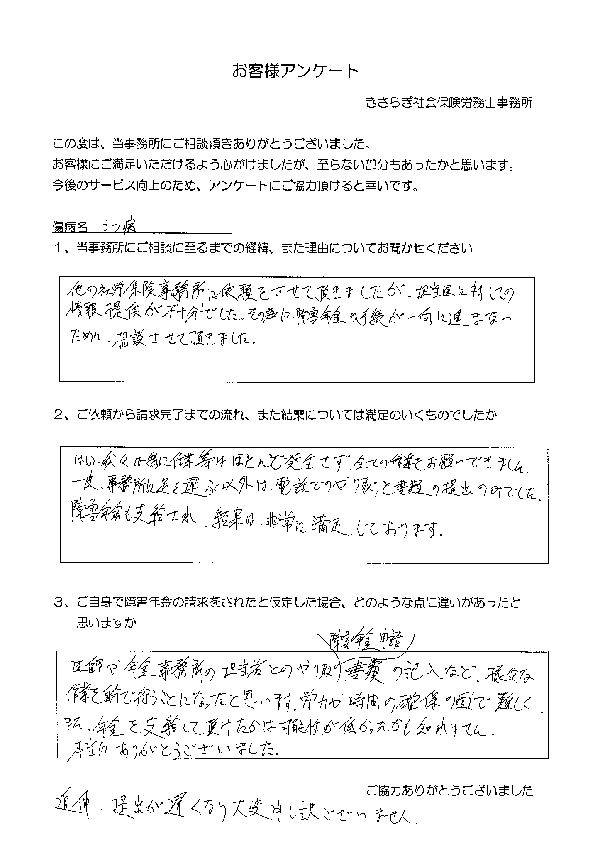 お客様アンケート
きさらぎ社会保険労務士事務所
この度は、当事務所にご相談頂きありがとうございました。
お客様にご満足いただけるよう心がけましたが、至らない部分もあったかと思います。
今後のサービス向上のため、アンケートにご協力頂けると幸いです。
傷病名 うつ病
1、当事務所にご相談に至るまでの経緯、また理由についてお聞かせください
他の社労保険事務所に依頼をさせて頂きましたが、担当医に対しての
情報提供が不十分でした。その為に障害年金の手続が一向に進まない
ために、相談させて頂きました。
2、ご依頼から請求完了までの流れ、また結果については満足のいくものでしたか
はい。 作業等はほとんど発生せず全ての作業をお願いできました。
一度、事務所に足を運ぶ以外は、電話でのやり取りと書類の提出のみでした。
障害年金も支給され、結果は、非常に満足しております。
3、ご自身で障害年金の請求をされたと仮定した場合、どのような点に違いがあったと
思いますか
障害年金用
医師や年金事務所の担当者とのやり取り 書類の記入など、様々な
作業を自分で行うことになったと思います。労力や時間の確保の面で難しく
また、年金を支給して頂けたかは可能性が低かったかも知れません。
本当にありがとうございました。
ご協力ありがとうございました
追伸、提出が遅くなり大変申し訳ございません。